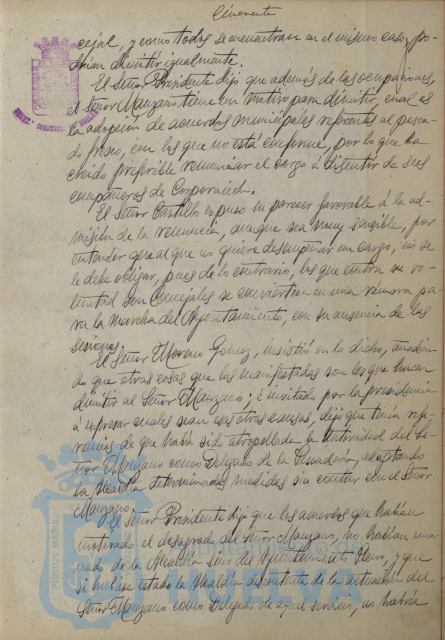 Cincuenta
cejal, y como todos se encuentran en el mismo caso, po-
drian dimitir igualmente.
El Señor Presidente dijo que además de las ocupaciones,
el Señor Manzano tiene un motivo para dimitir, cual es
la adopción de acuerdos municipales referentes al pesca-
do fresco, con los que no está conforme, por lo que ha
creido preferible renunciar el cargo á disentir de sus
compañeros de Corporación.
El Señor Castillo expuso su parecer favorable á la ad-
misión de la renuncia, aunque sea muy sensible, por
entender que al que no quiera desempeñar un cargo, no se
le debe obligar, pues de lo contrario, los que contra su vo-
luntad son Concejales se convierten en una rémora pa-
ra la marcha del Ayuntamiento, con su ausencia de las
sesiones.
El Señor Moreno Gómez, insistió en lo dicho, añadien-
do que otras cosas que las manifestadas son las que hacen
dimitir al Señor Manzano; é invitado por la presidencia
á expresar cuales sean esas otras causas, dijo que tenía refe-
rencias de que había sido atropellada la autoridad del Se-
ñor Manzano como Delegado de la Pescadería, adoptando
la Alcaldía determinadas medidas sin contar con el Señor
Manzano.
El Señor Presidente dijo que los acuerdos que habían
motivado el desagrado del Señor Manzano, no habían ema-
nado de la Alcaldía sino del Ayuntamiento Pleno, y que
si hubiese estado la Alcaldía descontenta de la actuación del
Señor Manzano como Delegado de aquel servicio, no habría
PORTUS MARIS
Ayuntamiento
HUELVA